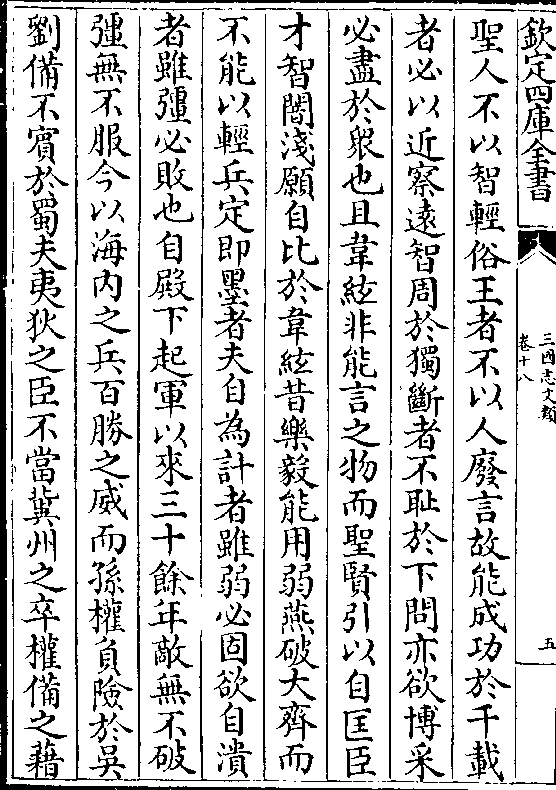 欽定四庫全書
三國志文類
卷十八
五
聖人不以智輕俗王者不以人廢言故能成功於千載
者必以近察遠智周於獨斷者不恥於下問亦欲博采
必盡於衆也且韋絃非能言之物而聖賢引以自匡臣
才智闇淺願自比於韋絃昔樂毅能用弱燕破大齊而
不能以輕兵定即墨者夫自為計者雖弱必固欲自潰
者雖彊必敗也自殿下起軍以來三十餘年敵無不破
彊無不服今以海内之兵百勝之威而孫權負險於吳
劉備不賓於蜀夫夷狄之臣不當冀州之卒權備之藉